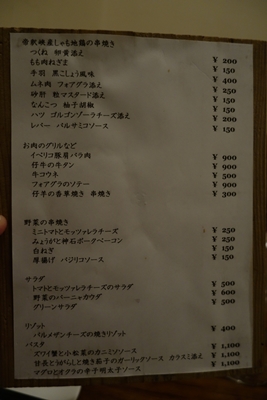 帝釈峡産しゃも地鶏の串焼き
つくね 卵黄添え ¥ 200
もも肉ねぎま ¥ 150
手羽 黒こしょう風味 ¥ 150
ムネ肉 フォアグラ添え ¥ 400
砂肝 粒マスタード添え ¥ 250
なんこつ 柚子胡椒 ¥ 150
ハツ ゴルゴンゾーラチーズ添え ¥ 200
レバー バルサミコソース ¥ 150
お肉のグリルなど
イベリコ豚肩バラ肉 ¥ 900
仔牛の牛タン ¥ 900
牛コウネ ¥ 500
フォアグラのソテー ¥ 900
仔羊の香草焼き 串焼き ¥ 300
野菜の串焼き
ミニトマトとモッツァレラチーズ ¥ 250
みょうがと神石ポークベーコン ¥ 250
白ねぎ ¥ 150
厚揚げ バジリコソース ¥ 150
サラダ
トマトとモッツァレラチーズのサラダ ¥ 500
野菜のバーニャカウダ ¥ 600
グリーンサラダ ¥ 500
リゾット
パルメザンチーズの焼きリゾット ¥ 400
パスタ
ズワイ蟹と小松菜のカニミソソース ¥ 1,100
甘長とうがらしと焼き茄子のガーリックソース カラスミ添え ¥ 1,100
マグロとオクラの辛子明太子ソース ¥ 1,100